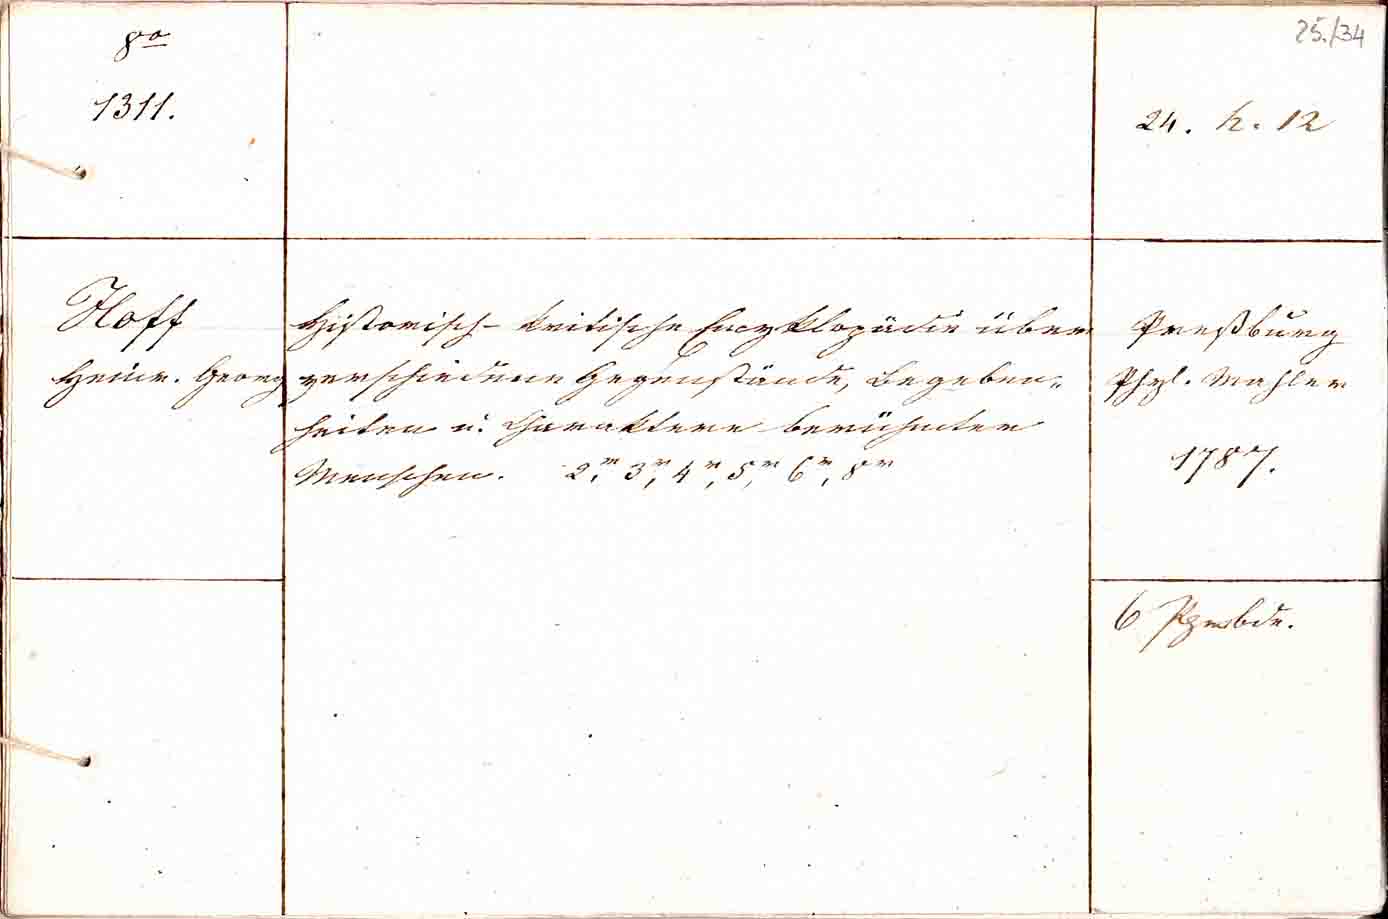 8º
1311.
25./34
24. h. 12
Hoff
Heinr. Georg
Historisch-kritische Encyklopädie über
verschiedene Gegenstände, Begeben„
heiten u. Charaktere berühmter
Menschen. 2r, 3r, 4r, 5r, 6r, 8r
Preßburg
Phil. Mahler
1787.
6 Ppmbde.